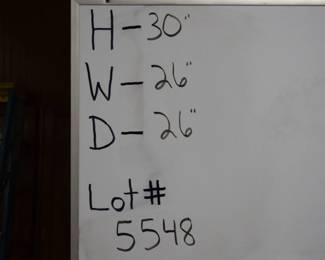 H-30"
W-26"
D-26"
Lot#
5548